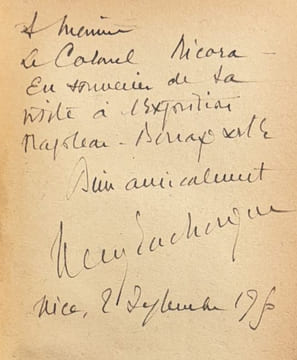 A Monsieur
Le Colonel Nicora
En souvenir de sa
visite à l'Exposition
Napoléon - Bonaparte
Bien amicalement
Nice, 2 Septembre